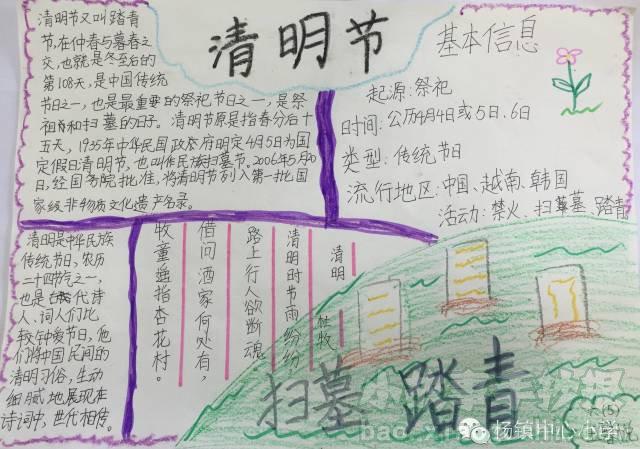 清明节
清明节又叫踏青
节,在仲春与暮春之
交,也就是冬至后的
第108天,是中国传统
节日之一,也是最重要的祭祀节日之一,是祭
祖和扫墓的日子。清明节原是指春分后十
五天,1935年中华民国政府明定4月5日为国
定假日清明节,也叫作民族扫墓节。2006年5月20
日,经国务院批准,将清明节列入第一批国
家级非物质文化遗产名录。
基本信息
起源:祭祀
时间:公历4月4日或5日、6日
类型:传统节日
流行地区:中国、越南、韩国
活动:禁火、扫墓、踏青
清明是中华民族
传统节日,农历
二十四节气之一,
也是古代诗
人、词人们比
较钟爱节日,他
们将中国民间的
清明习俗,生动
细腻地展现在
诗词中,世代相传。
清明
杜牧
清明时节雨纷纷
路上行人欲断魂
借问酒家何处有,
牧童遥指杏花村。
扫墓 踏青
杨镇中心小学